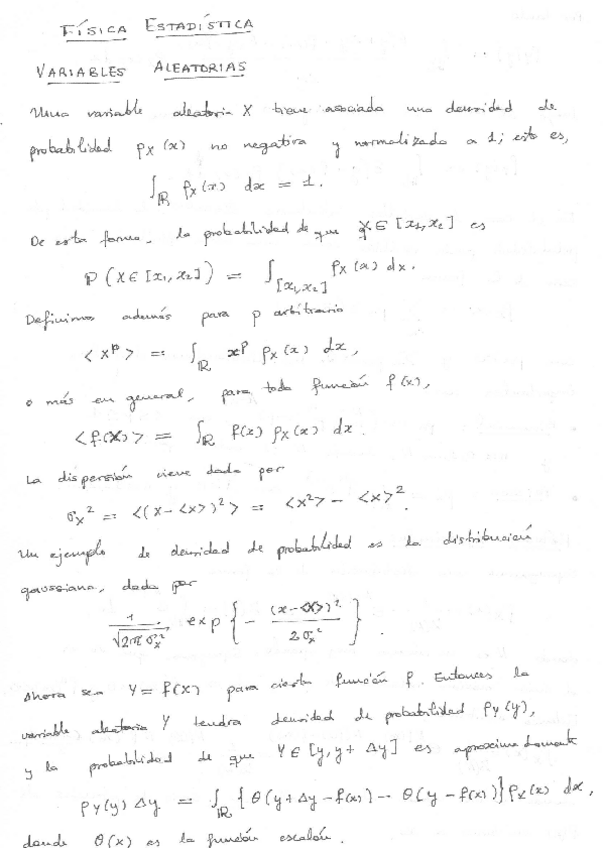 FÍSICA ESTADÍSTICA
VARIABLES ALEATORIAS
Una variable aleatoria X tiene asociada una densidad de
probabilidad ρ_X(x) no negativa y normalizada a 1; esto es,
∫_ℝ ρ_X(x) dx = 1.
De esta forma, la probabilidad de que X∈[x₁,x₂] es
P(X∈[x₁,x₂]) = ∫_[x₁,x₂] ρ_X(x) dx.
Definimos además para p arbitrario
<X^p> = ∫_ℝ x^p ρ_X(x) dx,
o más en general, para toda función f(x),
<f(X)> = ∫_ℝ f(x) ρ_X(x) dx.
La dispersión viene dada por
σ_X² = <(X-<X>)²> = <X²> - <X>².
Un ejemplo de densidad de probabilidad es la distribución
gaussiana, dada por
1/√(2πσ_X²) exp{ - (x-<X>)²/2σ_X² }.
Ahora sea Y = f(X) para cierta función f. Entonces la
variable aleatoria Y tendra densidad de probabilidad ρ_Y(y),
y la probabilidad de que Y∈[y, y+Δy] es aproximadamente
ρ_Y(y) Δy = ∫_ℝ {θ(y+Δy-f(x)) - θ(y-f(x))} ρ_X(x) dx,
donde θ(x) es la función escalón.